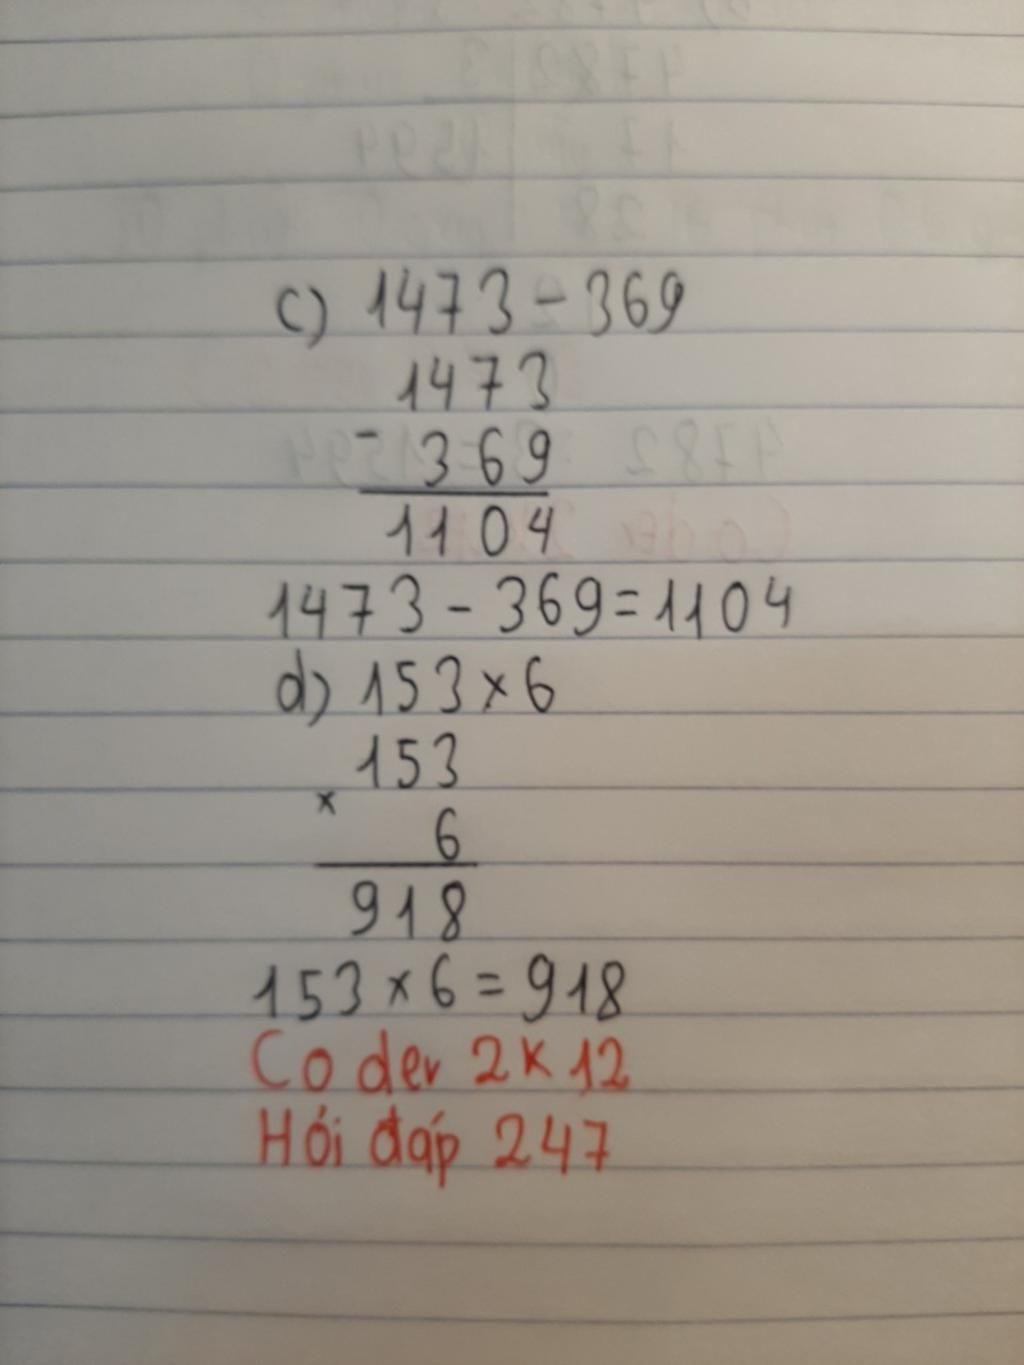 c) 1473 - 369
1473
- 369
1104
1473 - 369 = 1104
d) 153 x 6
153
x
6
918
153 x 6 = 918
Coder 2K12
Hỏi đáp 247